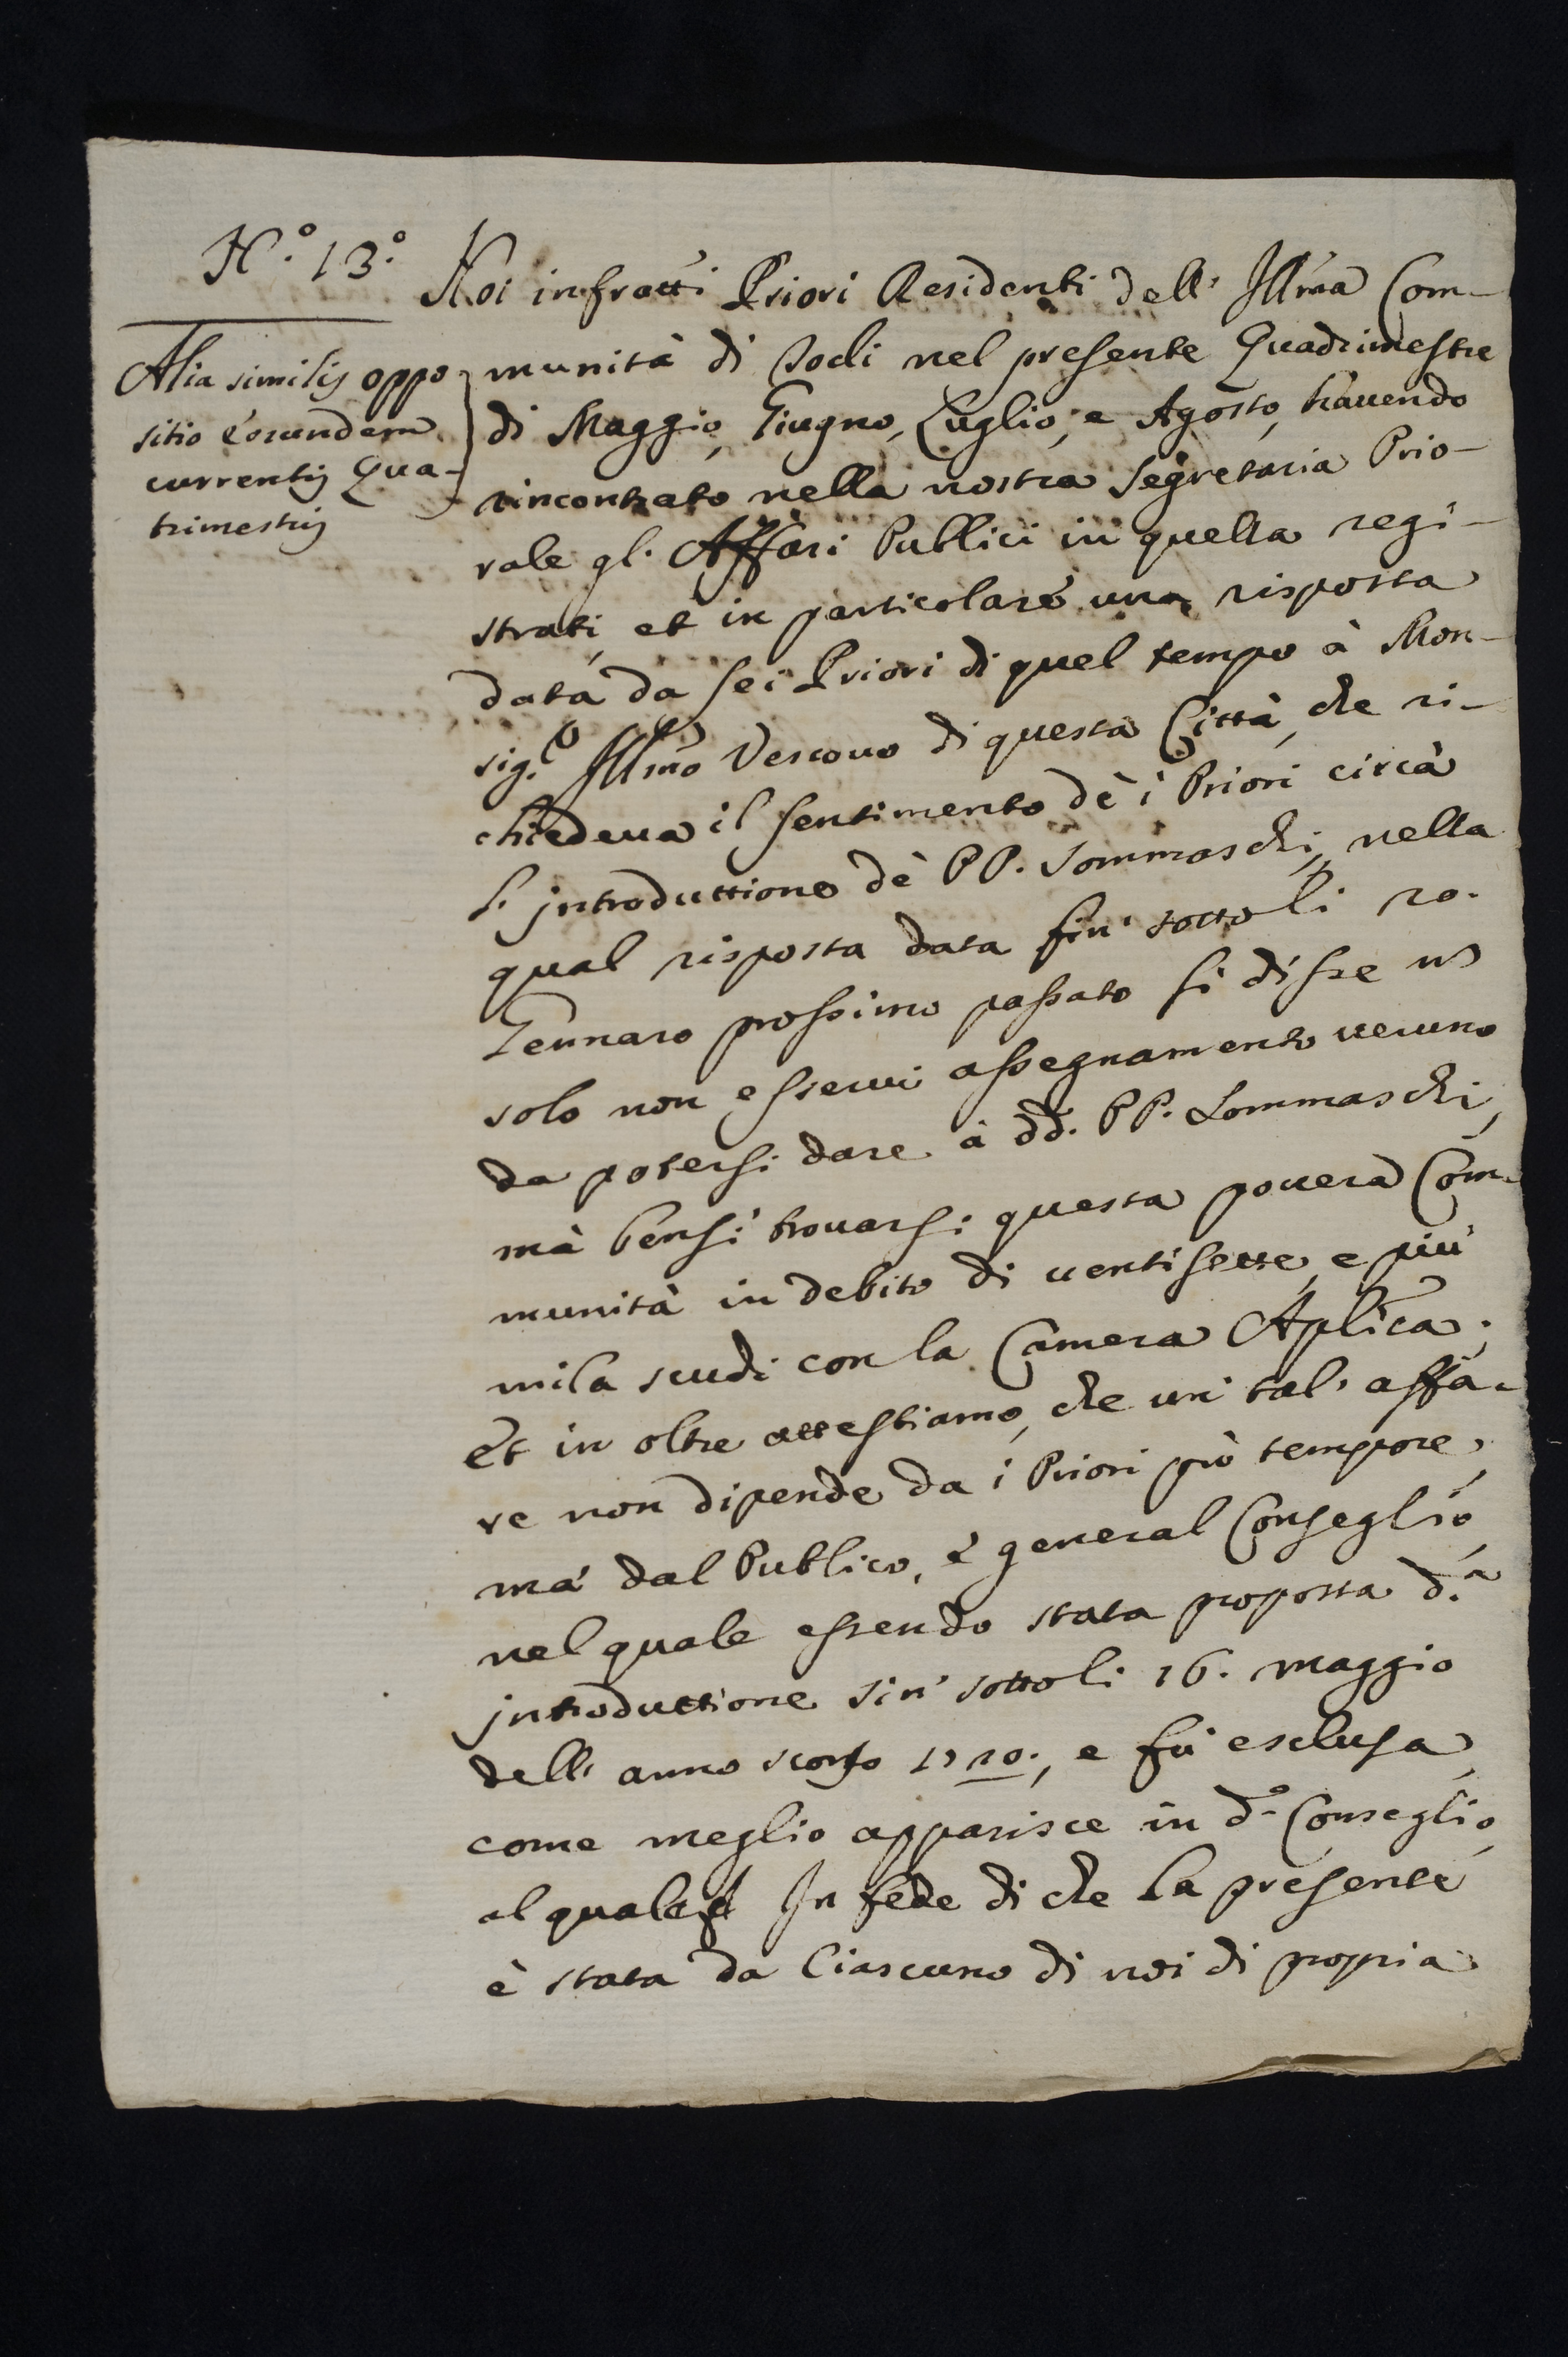 N.º 13.º
Alia similis oppo
sitio eorundem
currentis Qua-
trimestris
Noi infratti Priori Residenti dell' Illma Com-
munità di Todi nel presente Quadrimestre
di Maggio, Giugno, Luglio, e Agosto, hauendo
rincontrato nella nostra Segretaria Prio-
rale gl' Affari Publici in quella regi-
strati, et in particolare una risposta
data da sei Priori di quel tempo à Mon-
sig.e Illmo Vescouo di questa Città, che ri-
chiedeua il sentimento dè i Priori circà
l' introduttione dè PP. Sommaschi, nella
qual risposta data fin' sotto li 20.
Gennaro prossimo passato si disse nõ
solo non esserui assegnamento ueruno
da potersi dare à dd. PP. Sommaschi,
mà bensì trouarsi questa pouera Com-
munità in debito di uentisette, e più
mila scudi con la Camera Aplica.
Et in oltre attestiamo, che un' tal' affa-
re non dipende da i Priori prò tempore,
mà dal Publico, è general Conseglio
nel quale essendo stata proposta d.ª
introduttione sin' sotto li 16. maggio
dell' anno scorso 1720., e fù esclusa,
come meglio apparisce in d.º Conseglio,
al quale In fede di che la presente
è stata da Ciascuno di noi di propria